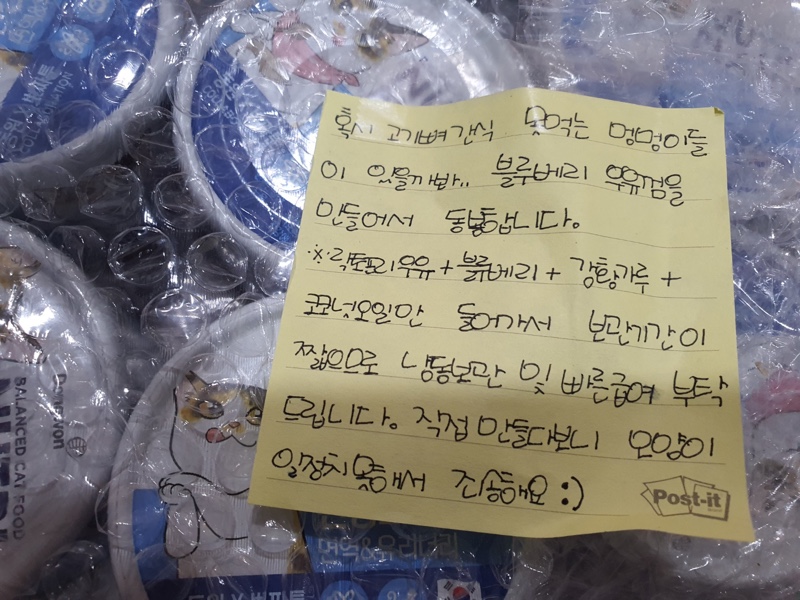 혹시 고기뼈간식 못먹는 멍멍이들
이 있을까봐.. 블루베리 우유껌을
만들어서 동봉합니다.
※락토프리우유+블루베리+강황가루+
코코넛오일만 들어가서 보관기간이
짧으므로 냉동보관 및 빠른급여 부탁
드립니다. 직접 만들다보니 모양이
일정치못해서 죄송해요 :)
Post-it
Dongwon
BALANCED CAT FOOD
면역&유레나리